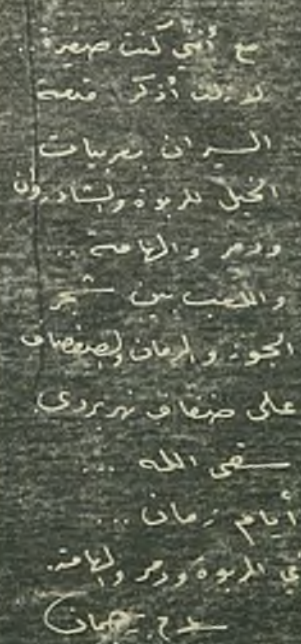 مع أنني كنت صغيرة ..
لا زلت أذكر متعة
السيران بعربيات
الخيل للربوة والشادروان
ودمر والهامة ..
واللعب بين شجر
الجوز والرمان والصفصاف
على ضفاف نهر بردى
سقى الله ...
أيام زمان ...
في الربوة ودمر والهامة.